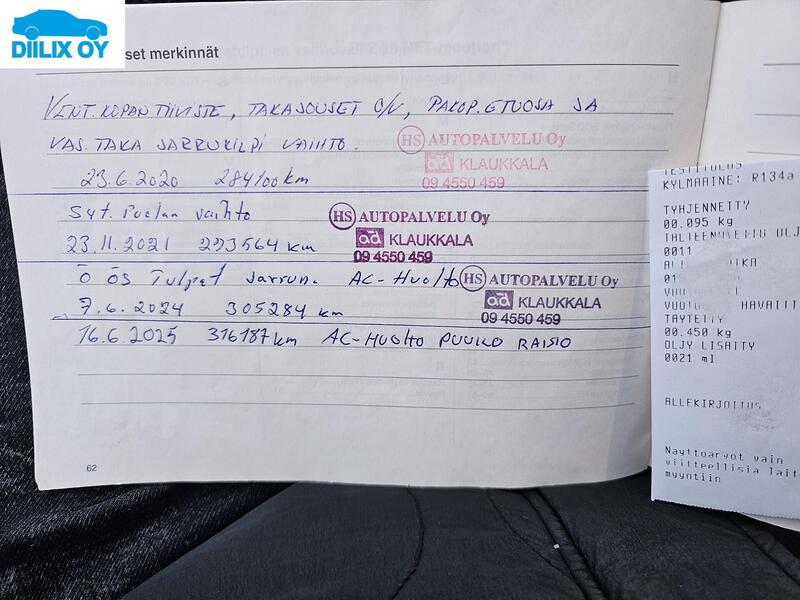 DIILIX OY
set merkinnät
VENT.KOPAN TIIVISTE, TAKAJOUSET O/V, PAKOP. ETUOSA JA
VAS. TAKA JARRUKILPI VAIHTO.
HS AUTOPALVELU Oy
ad KLAUKKALA
09 4550 459
23.6.2020 284100km
Syt. Puolan vaihto
HS AUTOPALVELU Oy
ad KLAUKKALA
09 4550 459
23.11.2021 293564 km
Ö ÖS Tulpat Jarrun. AC-Huolto
HS AUTOPALVELU Oy
ad KLAUKKALA
09 4550 459
7.6.2024 305284 km
16.6.2025 316187 km AC-HUOLTO PUUILO RAISIO
62
TESTITULOS
KYLMAAINE: R134a
TYHJENNETTY
00.095 kg
0011
HAVAITT
TAYTETTY
00.450 kg
OLJY LISATTY
0021 ml
ALLEKIRJOITUS
Nayttoarvot vain
viitteellisia lait
myyntiin